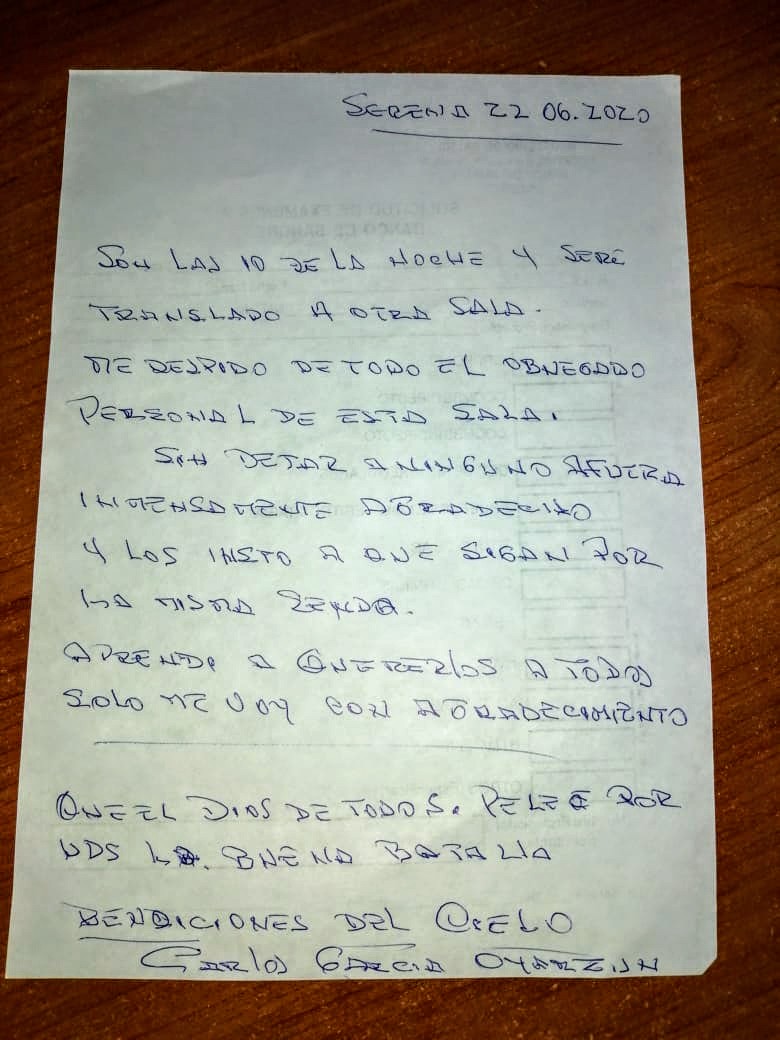 SERENA 22 06.2020
SON LAS 10 DE LA NOCHE Y SERÉ
TRANSLADO A OTRA SALA.
ME DESPIDO DE TODO EL OBNEGADO
PERSONAL DE ESTA SALA.
SIN DEJAR A NINGUNO AFUERA
INMENSAMENTE AGRADECIDO
Y LOS INSTO A QUE SIGAN POR
LA MISMA SENDA.
APRENDI A QUERERLOS A TODOS
SOLO ME VOY CON AGRADECIMIENTO
QUE EL DIOS DE TODOS. PELEE POR
UDS LA. BUENA BATALLA
BENDICIONES DEL CIELO
CARLOS GARCIA OYARZUN
SOLICITUD DE EXAMENES
BANCO DE SANGRE